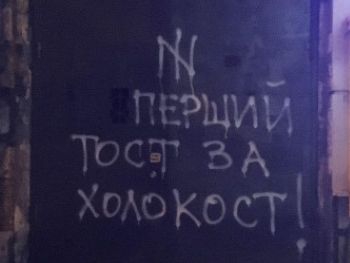 ПЕРШИЙ
ТОСТ ЗА
ХОЛОКОСТ!